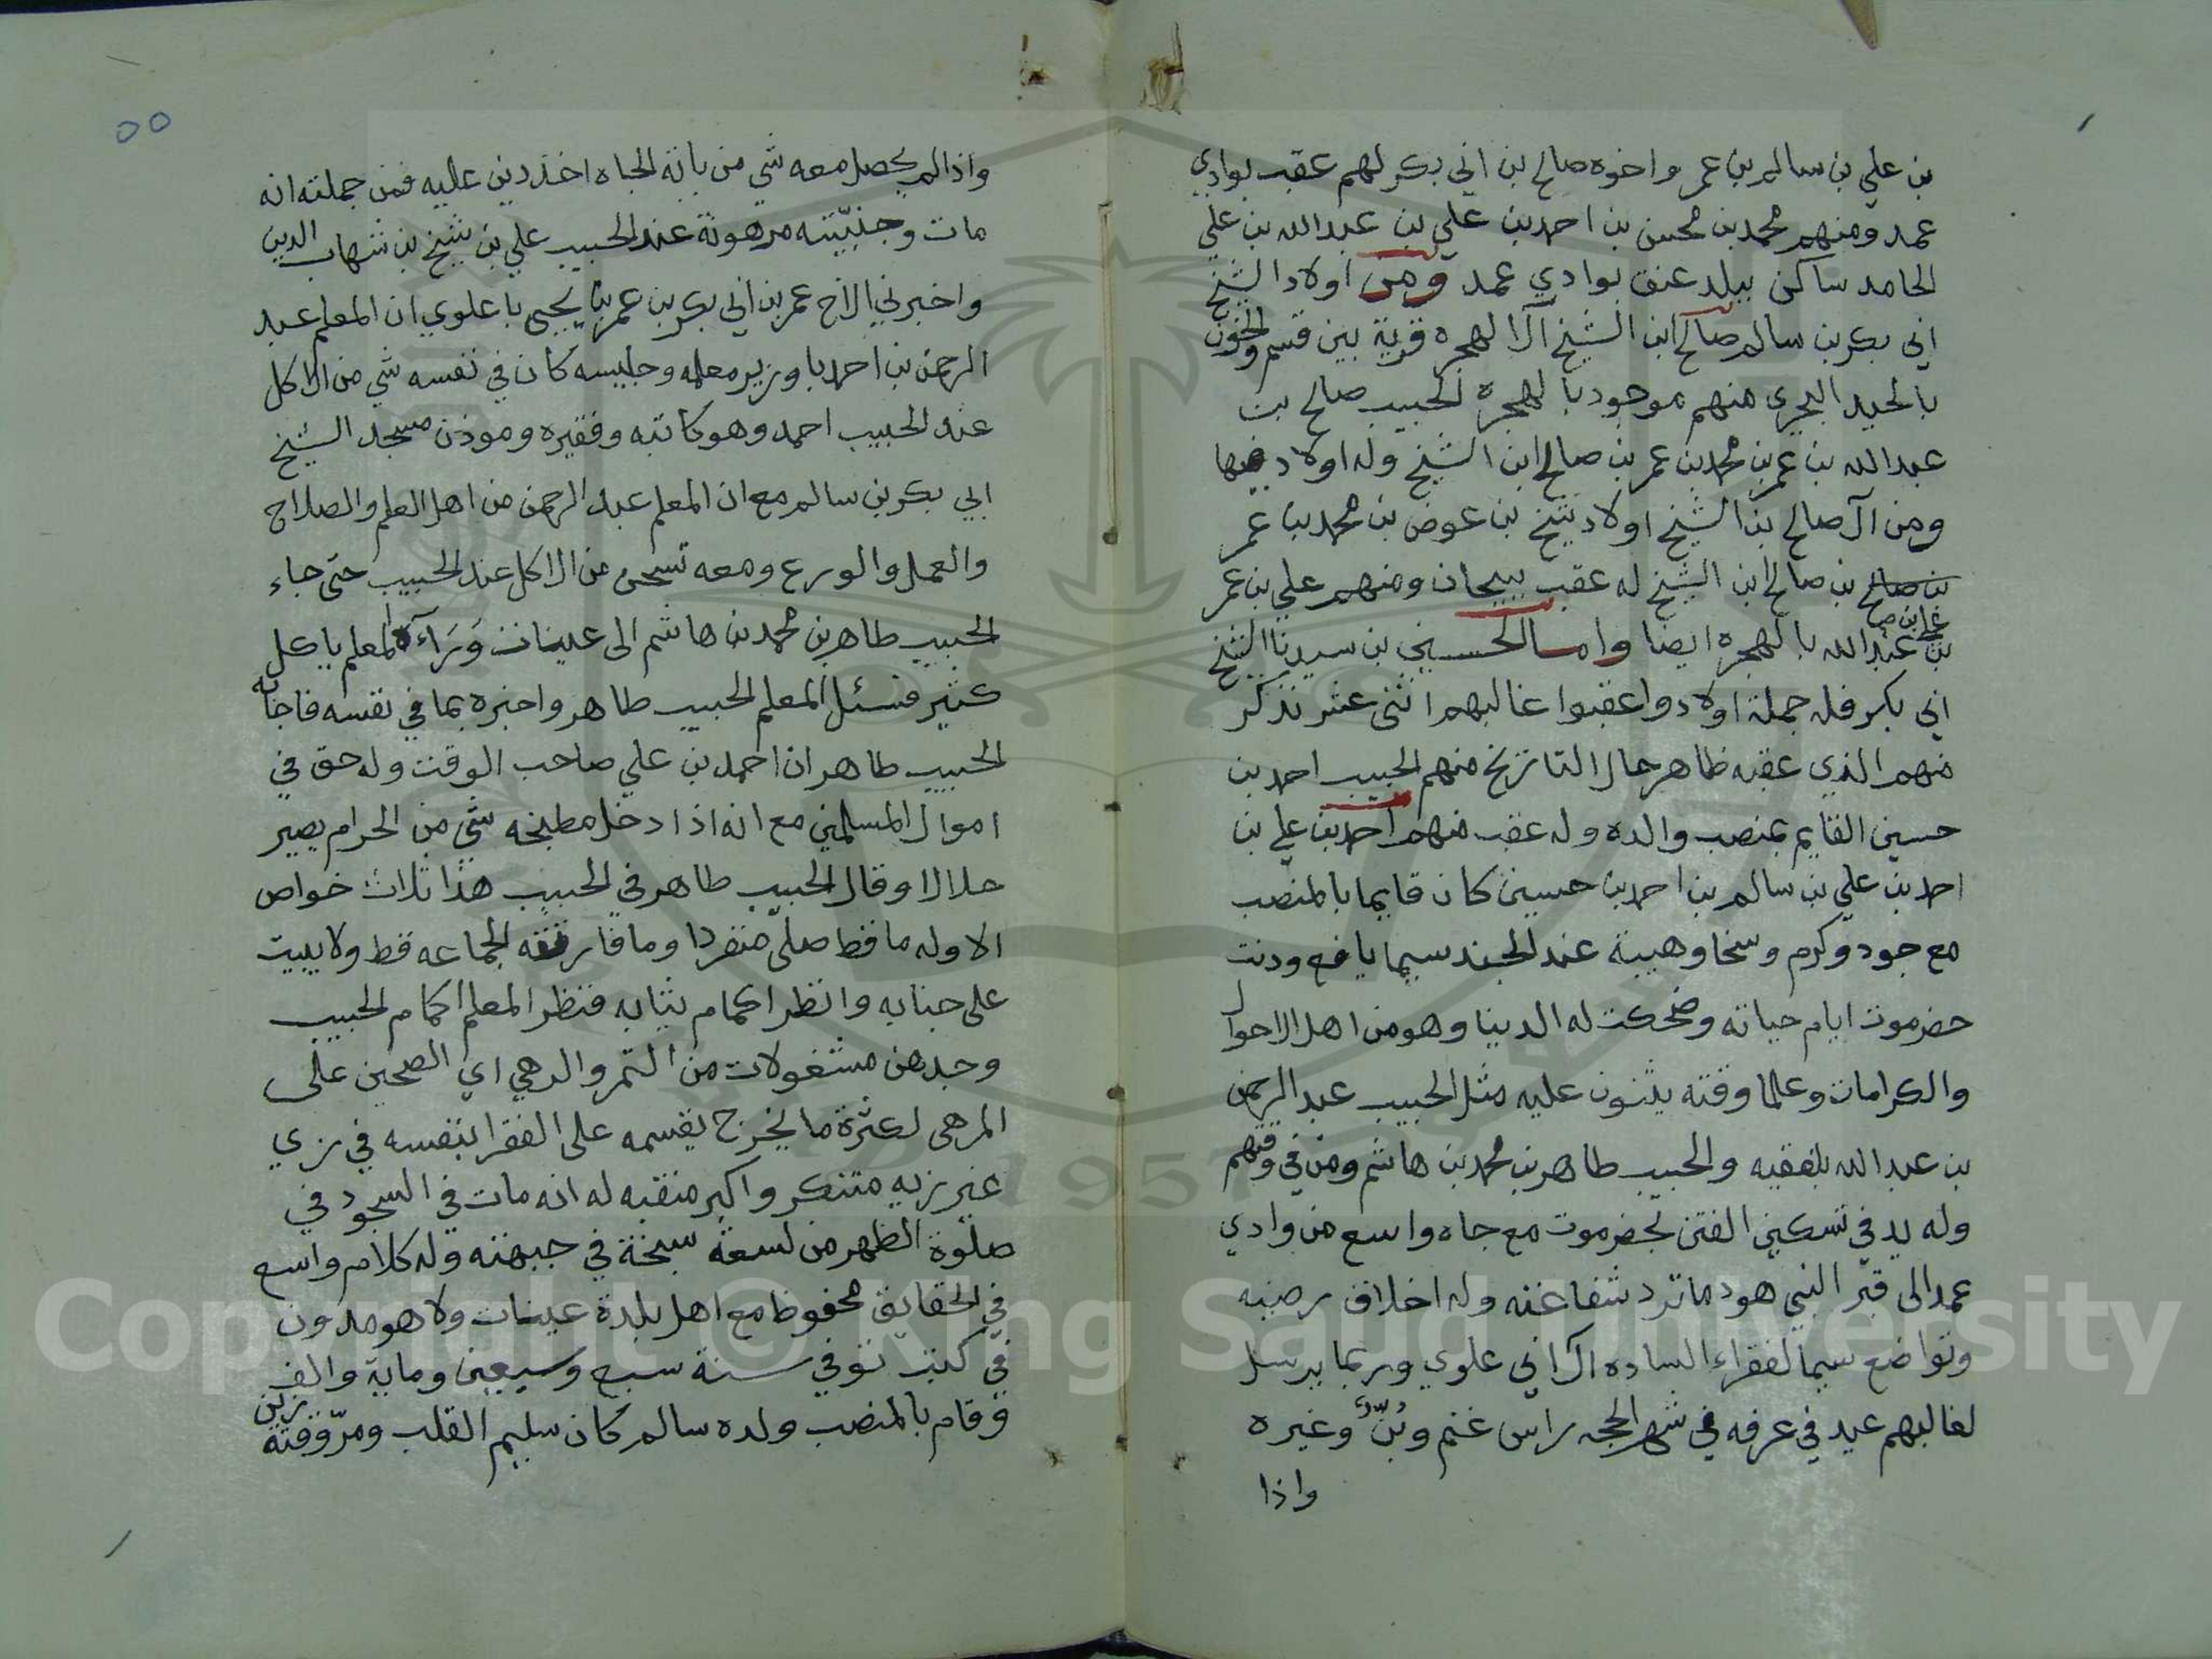 بن علي بن سالم بن عمر واخوه صالح بن ابي بكر لهم عقب بوادي
عمد ومنهم محمد بن محسن بن احمد بن علي بن عبدالله بن علي
الحامد ساكن ببلد عنق بوادي عمد ومن اولاد الشيخ
ابي بكر بن سالم صالح ابن الشيخ آل الهجره قرية بين قسم والخون
بالحيد البحري منهم موجود بالهجره الحبيب صالح بن
عبدالله بن عمر بن محمد بن عمر بن صالح ابن الشيخ وله اولاد فيها
ومن آل صالح بن الشيخ اولاد شيخ بن عوض بن محمد بن عمر
بن صالح بن صالح ابن الشيخ له عقب ببيحان ومنهم علي بن عمر
بن عبدالله بالهجره ايضا واما الحسين بن سيدنا الشيخ
ابي بكر فله جملة اولاد واعقبوا غالبهم اثنى عشر نذكر
منهم الذي عقبه ظاهر حال التاريخ منهم الحبيب احمد بن
حسين القايم بمنصب والده وله عقب منهم احمد بن علي بن
احمد بن علي بن سالم بن احمد بن حسين كان قايما بالمنصب
مع جود وكرم وسخا وهيبة عند الجند سيما يافع ودنت
حضرموت ايام حياته وضحكت له الدنيا وهو من اهل الاحوال
والكرامات وعلما وقته يثنون عليه مثل الحبيب عبد الرحمن
بن عبدالله بلفقيه والحبيب طاهر بن محمد بن هاشم ومن في وقتهم
وله يد في تسكين الفتن بحضرموت مع جاه واسع من وادي
عمد الى قبر النبي هود ما ترد شفاعته وله اخلاق رضيه
وتواضع سيما لفقراء الساده آل ابي علوي وربما يرسل
لغالبهم عيد في عرفه في شهر الحجه راس غنم وبُنّ وغيره
واذا
٥٥
واذا لم يحصل معه شي من باية الجباه اخذ دين عليه فمن جملته انه
مات وجنبيّته مرهونة عند الحبيب علي بن شيخ بن شهاب الدين
واخبرني الاخ عمر بن ابي بكر بن عمر بن يحيى باعلوي ان المعلم عبد
الرحمن بن احمد باوزير معلمه وجليسه كان في نفسه شي من الاكل
عند الحبيب احمد وهو كاتبه وفقيره وموذن مسجد الشيخ
ابي بكر بن سالم مع ان المعلم عبد الرحمن من اهل العلم والصلاح
والعمل والورع ومعه من الاكل عند الحبيب حتى جاء
الحبيب طاهر بن محمد بن هاشم الى عينات وَرَآه المعلم ياكل
كثير فسئل المعلم الحبيب طاهر واخبره بما في نفسه فاجابه
الحبيب طاهر ان احمد بن علي صاحب الوقت وله حق في
اموال المسلمين مع انه اذا دخل مطبخه شي من الحرام يصير
حلالا وقال الحبيب طاهر في الحبيب هذا ثلاث خواص
الاوله ما قط صلى منفردا وما فارقته الجماعه قط ولا يبيت
على جنابه وانظر اكمام ثيابه فنظر المعلم اكمام الحبيب
وجدهن مشغولات من التمر والرهي اي الصحين على
المرهى لكثرة ما يخرج يقسمه على الفقرا بنفسه في زي
غير زيه متنكر واكبر منقبه له انه مات في السجود في
صلوة الظهر من لسعة سبخة في جبهته وله كلام واسع
في الحقايق محفوظ مع اهل بلدة عينات ولا هو مدون
في كتب توفي سنة سبع وسبعين وماية والف
وقام بالمنصب ولده سالم كان سليم القلب ومرّوقته زين
Copyright © King Saud University
1957